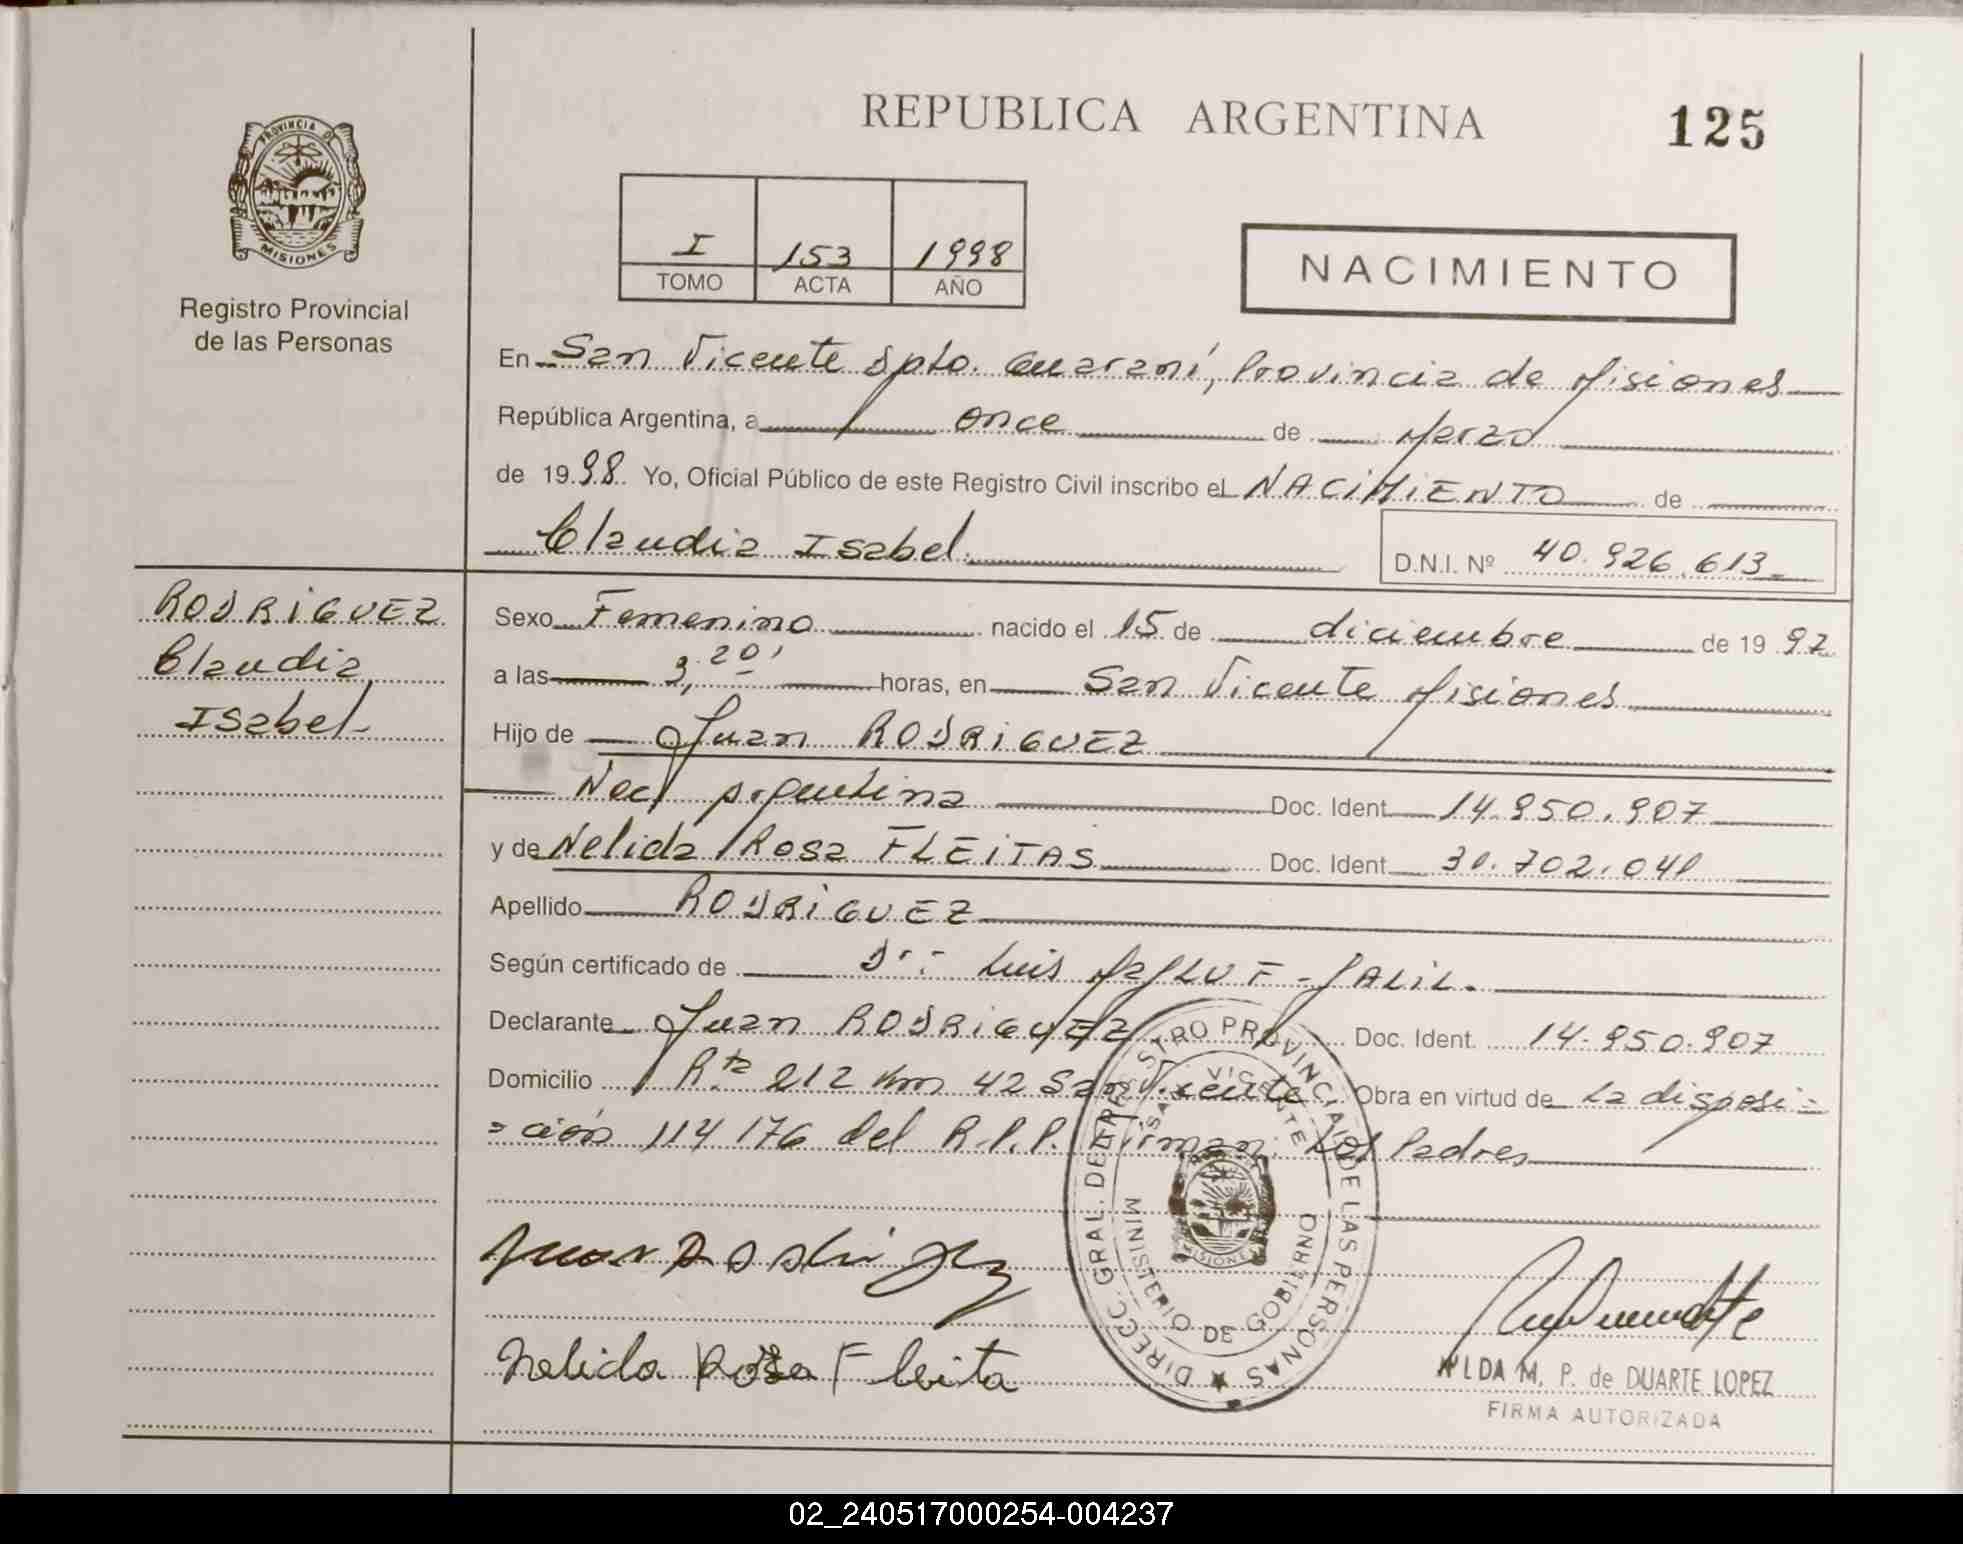 REPUBLICA ARGENTINA
125
PROVINCIA DE
MISIONES
Registro Provincial
de las Personas
I 153 1998
TOMO ACTA AÑO
NACIMIENTO
En San Vicente Dpto. Guaraní, Provincia de Misiones
República Argentina, a once de Marzo
de 1998 Yo, Oficial Público de este Registro Civil inscribo el NACIMIENTO de
Claudia Isabel
D.N.I. Nº 40.926.613
RODRIGUEZ
Claudia
Isabel
Sexo Femenino nacido el 15 de diciembre de 1997
a las 3,20' horas, en San Vicente Misiones
Hijo de Juan RODRIGUEZ
Nac Argentina Doc. Ident 14.950.907
y de Nelida Rosa FLEITAS Doc. Ident 30.702.041
Apellido RODRIGUEZ
Según certificado de Dr: Luis
Declarante Juan RODRIGUEZ Doc. Ident. 14.950.907
Domicilio Rta 212 Km 42 San Vicente Obra en virtud de La disposi=
=ción 114176 del R.P.P. Firman: Los Padres
DIRECC. GRAL. DEL REGISTRO PROVINCIAL DE LAS PERSONAS
SAN VICENTE
MISIONES
MINISTERIO DE GOBIERNO
Juan Rodriguez
Nelida Rosa Fleita
HILDA M. P. de DUARTE LOPEZ
FIRMA AUTORIZADA
02_240517000254-004237